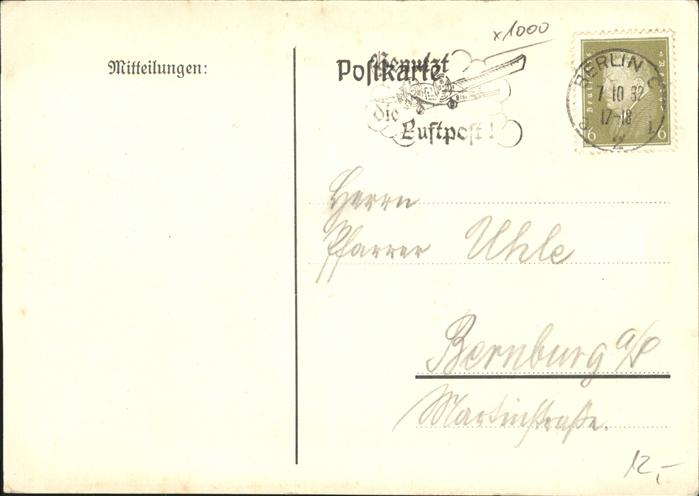 x1000
Mitteilungen:
Postkarte
Benutzt
die
Luftpost!
BERLIN C
7 10 32
17-18
2
6 6
Herrn
Pfarrer Uhle
Bernburg a/S
Martinstraße.
12,-